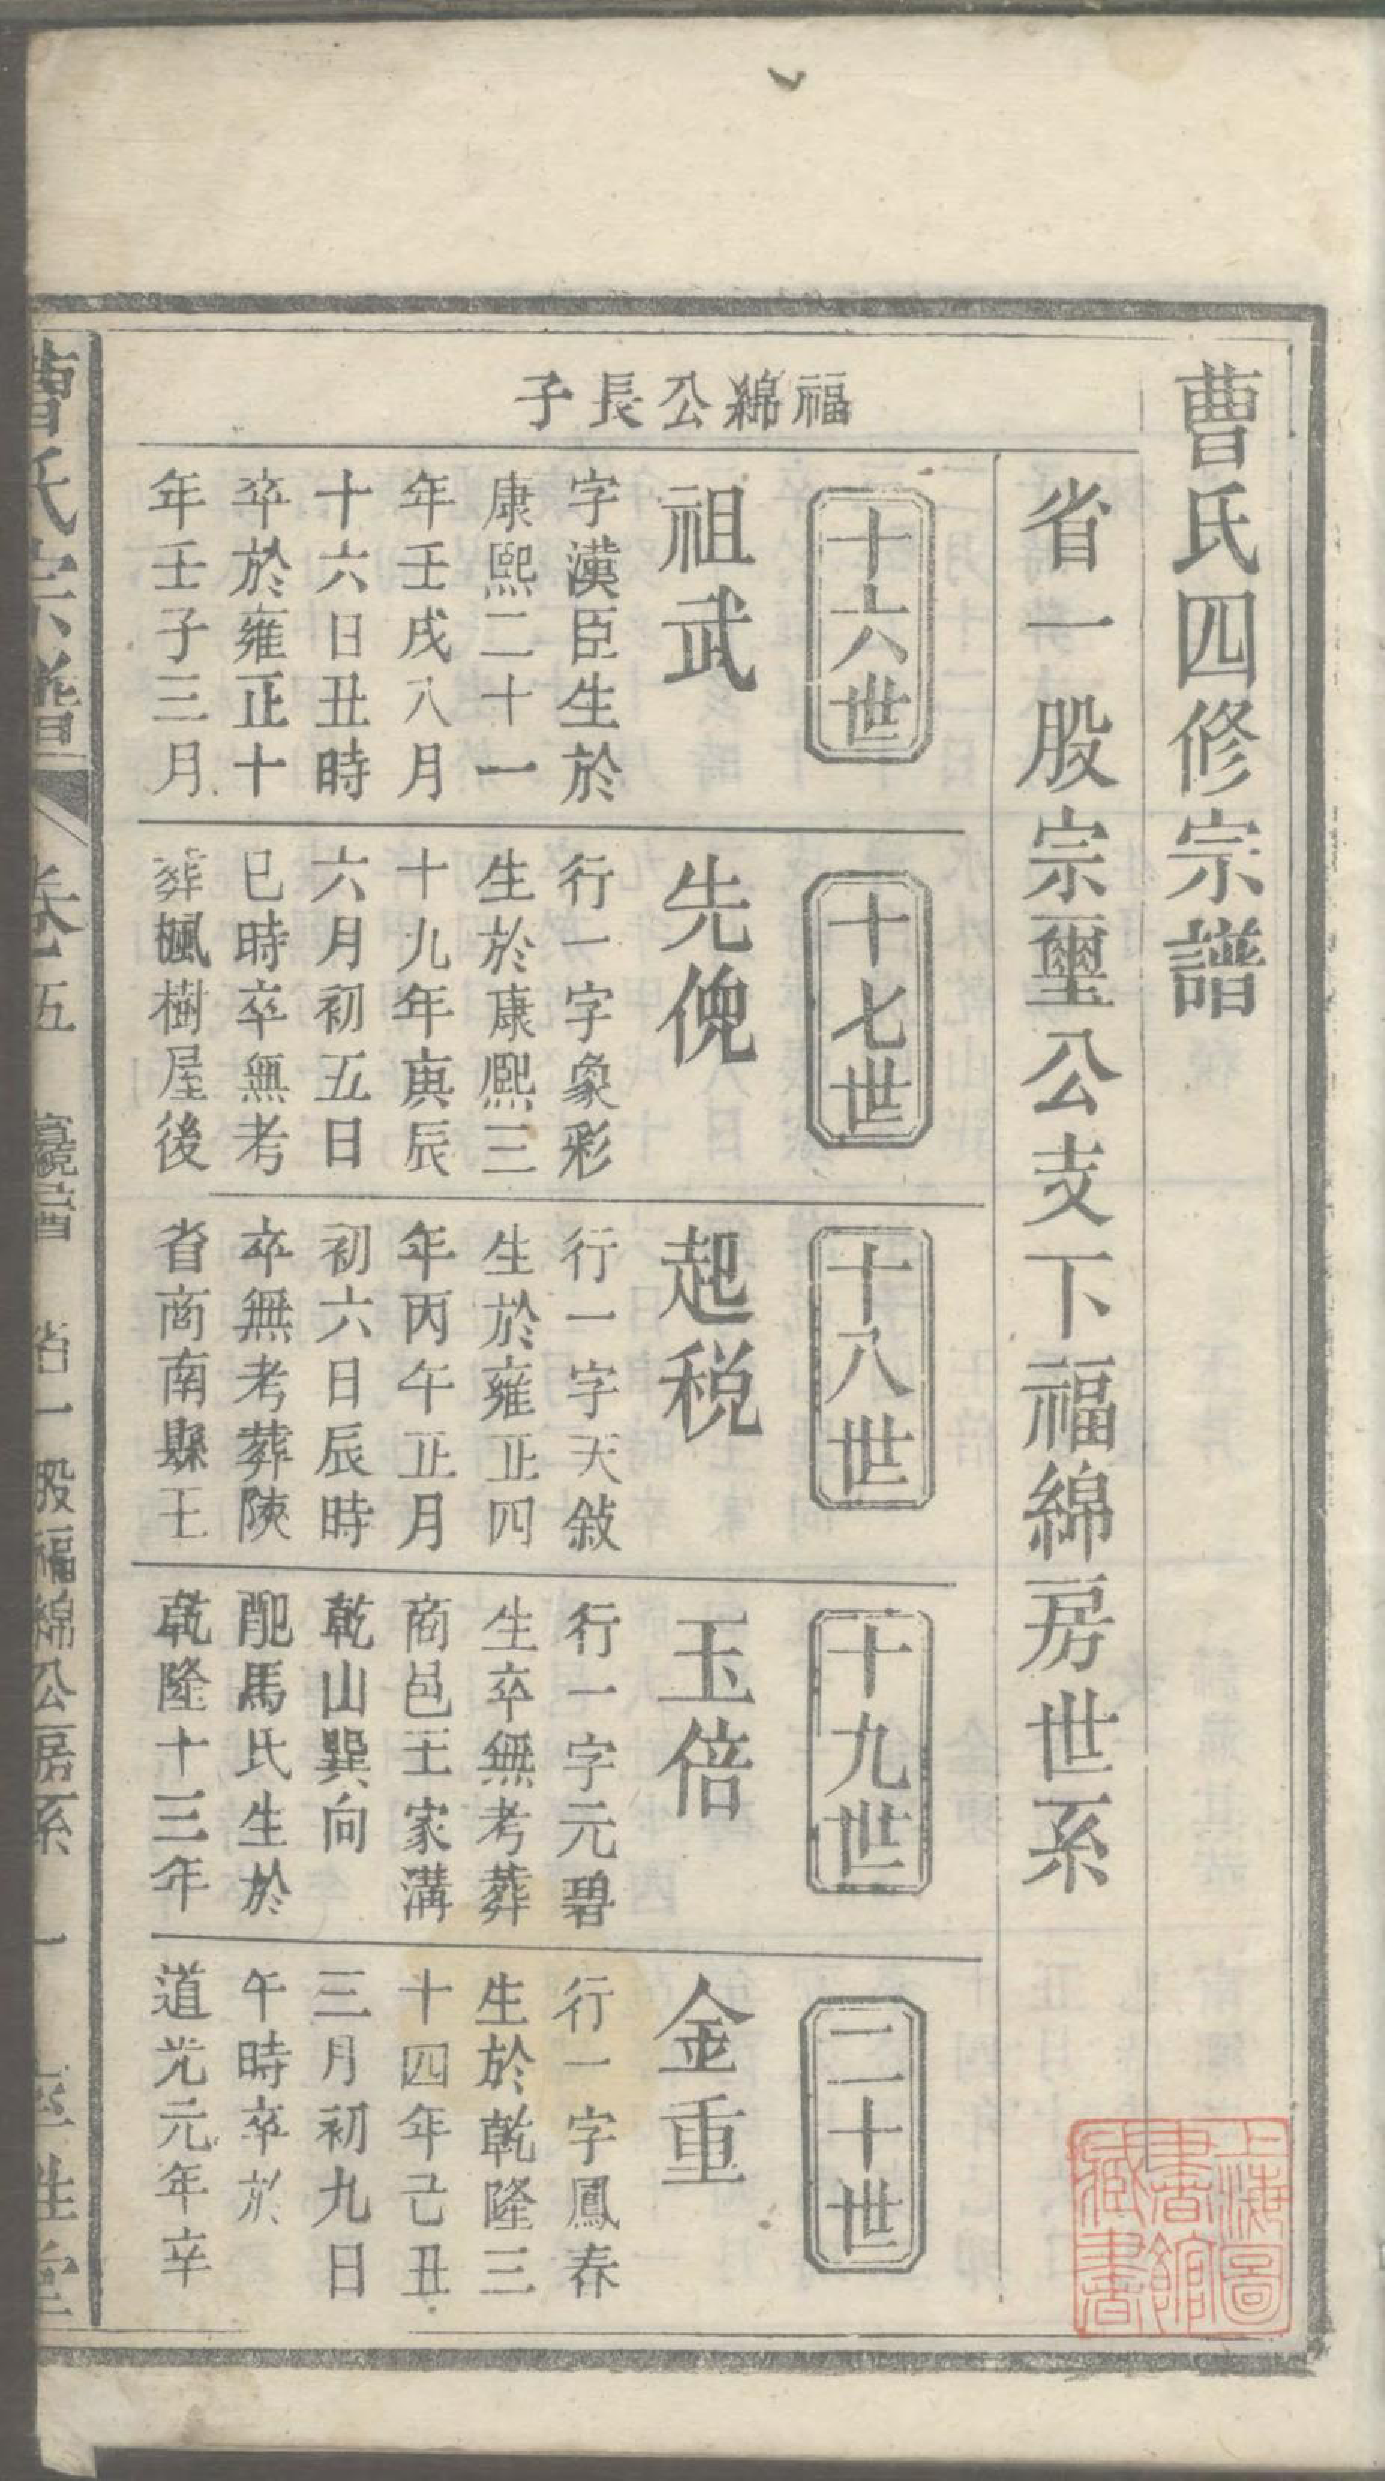 曹氏四修宗譜
省一股宗璽公支下福綿房世系
福綿公長子
十六世
祖武
字漢臣生於
康熙二十一
年壬戌八月
十六日丑時
卒於雍正十
年壬子三月
十七世
先俾
行一字象彩
生於康熙三
十九年庚辰
六月初五日
巳時卒無考
葬楓樹屋後
十八世
起税
行一字天敍
生於雍正四
年丙午正月
初六日辰時
卒無考葬陝
省商南縣王
十九世
玉倍
行一字元碧
生卒無考葬
商邑王家溝
乾山巽向
配馬氏生於
乾隆十三年
二十世
金重
行一字鳳春
生於乾隆三
十四年己丑
三月初九日
午時卒於
道光元年辛
曹氏宗譜 卷五 省一股福綿公房系 一
上海圖書館藏書